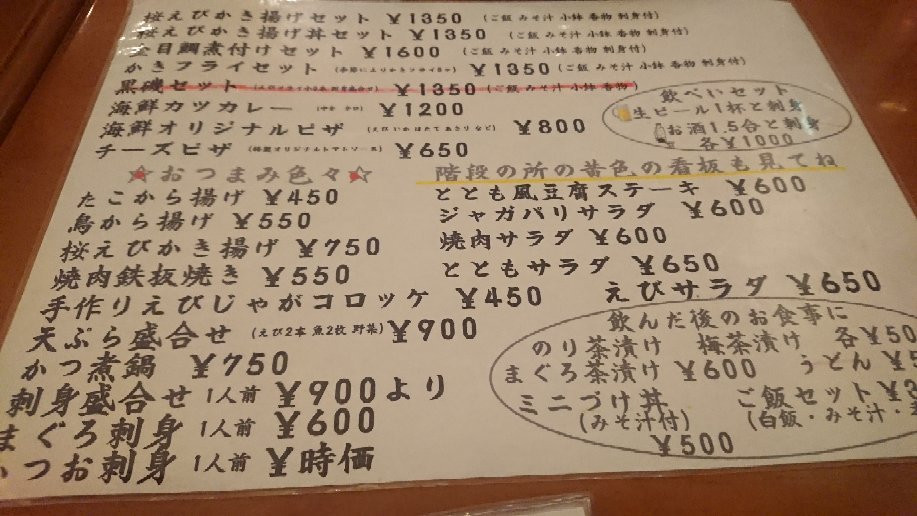 桜えびかき揚げセット ¥1350 (ご飯 みそ汁 小鉢 香物 刺身付)
桜えびかき揚げ丼セット ¥1350 (ご飯 みそ汁 小鉢 香物 刺身付)
金目鯛煮付けセット ¥1600 (ご飯 みそ汁 小鉢 香物 刺身付)
かきフライセット ¥1350 (ご飯 みそ汁 小鉢 香物 刺身付)
黒磯セット ¥1350 (ご飯 みそ汁 小鉢 香物)
海鮮カツカレー ¥1200
海鮮オリジナルピザ (えび いか ほたて あさり など) ¥800
チーズピザ (特製オリジナルトマトソース) ¥650
飲べいセット
生ビール1杯と刺身
お酒1.5合と刺身
各¥1000
★おつまみ色々★
たこから揚げ ¥450
鳥から揚げ ¥550
桜えびかき揚げ ¥750
焼肉鉄板焼き ¥550
手作りえびじゃがコロッケ ¥450
天ぷら盛合せ (えび2本 魚2枚 野菜) ¥900
かつ煮鍋 ¥750
刺身盛合せ 1人前 ¥900より
まぐろ刺身 1人前 ¥600
かつお刺身 1人前 ¥時価
階段の所の黄色の看板も見てね
ととも風豆腐ステーキ ¥600
ジャガパリサラダ ¥600
焼肉サラダ ¥600
とともサラダ ¥650
えびサラダ ¥650
飲んだ後のお食事に
のり茶漬け 梅茶漬け 各¥50
まぐろ茶漬け ¥600 うどん ¥5
ミニづけ丼 ご飯セット ¥3
(みそ汁付) (白飯・みそ汁・
¥500